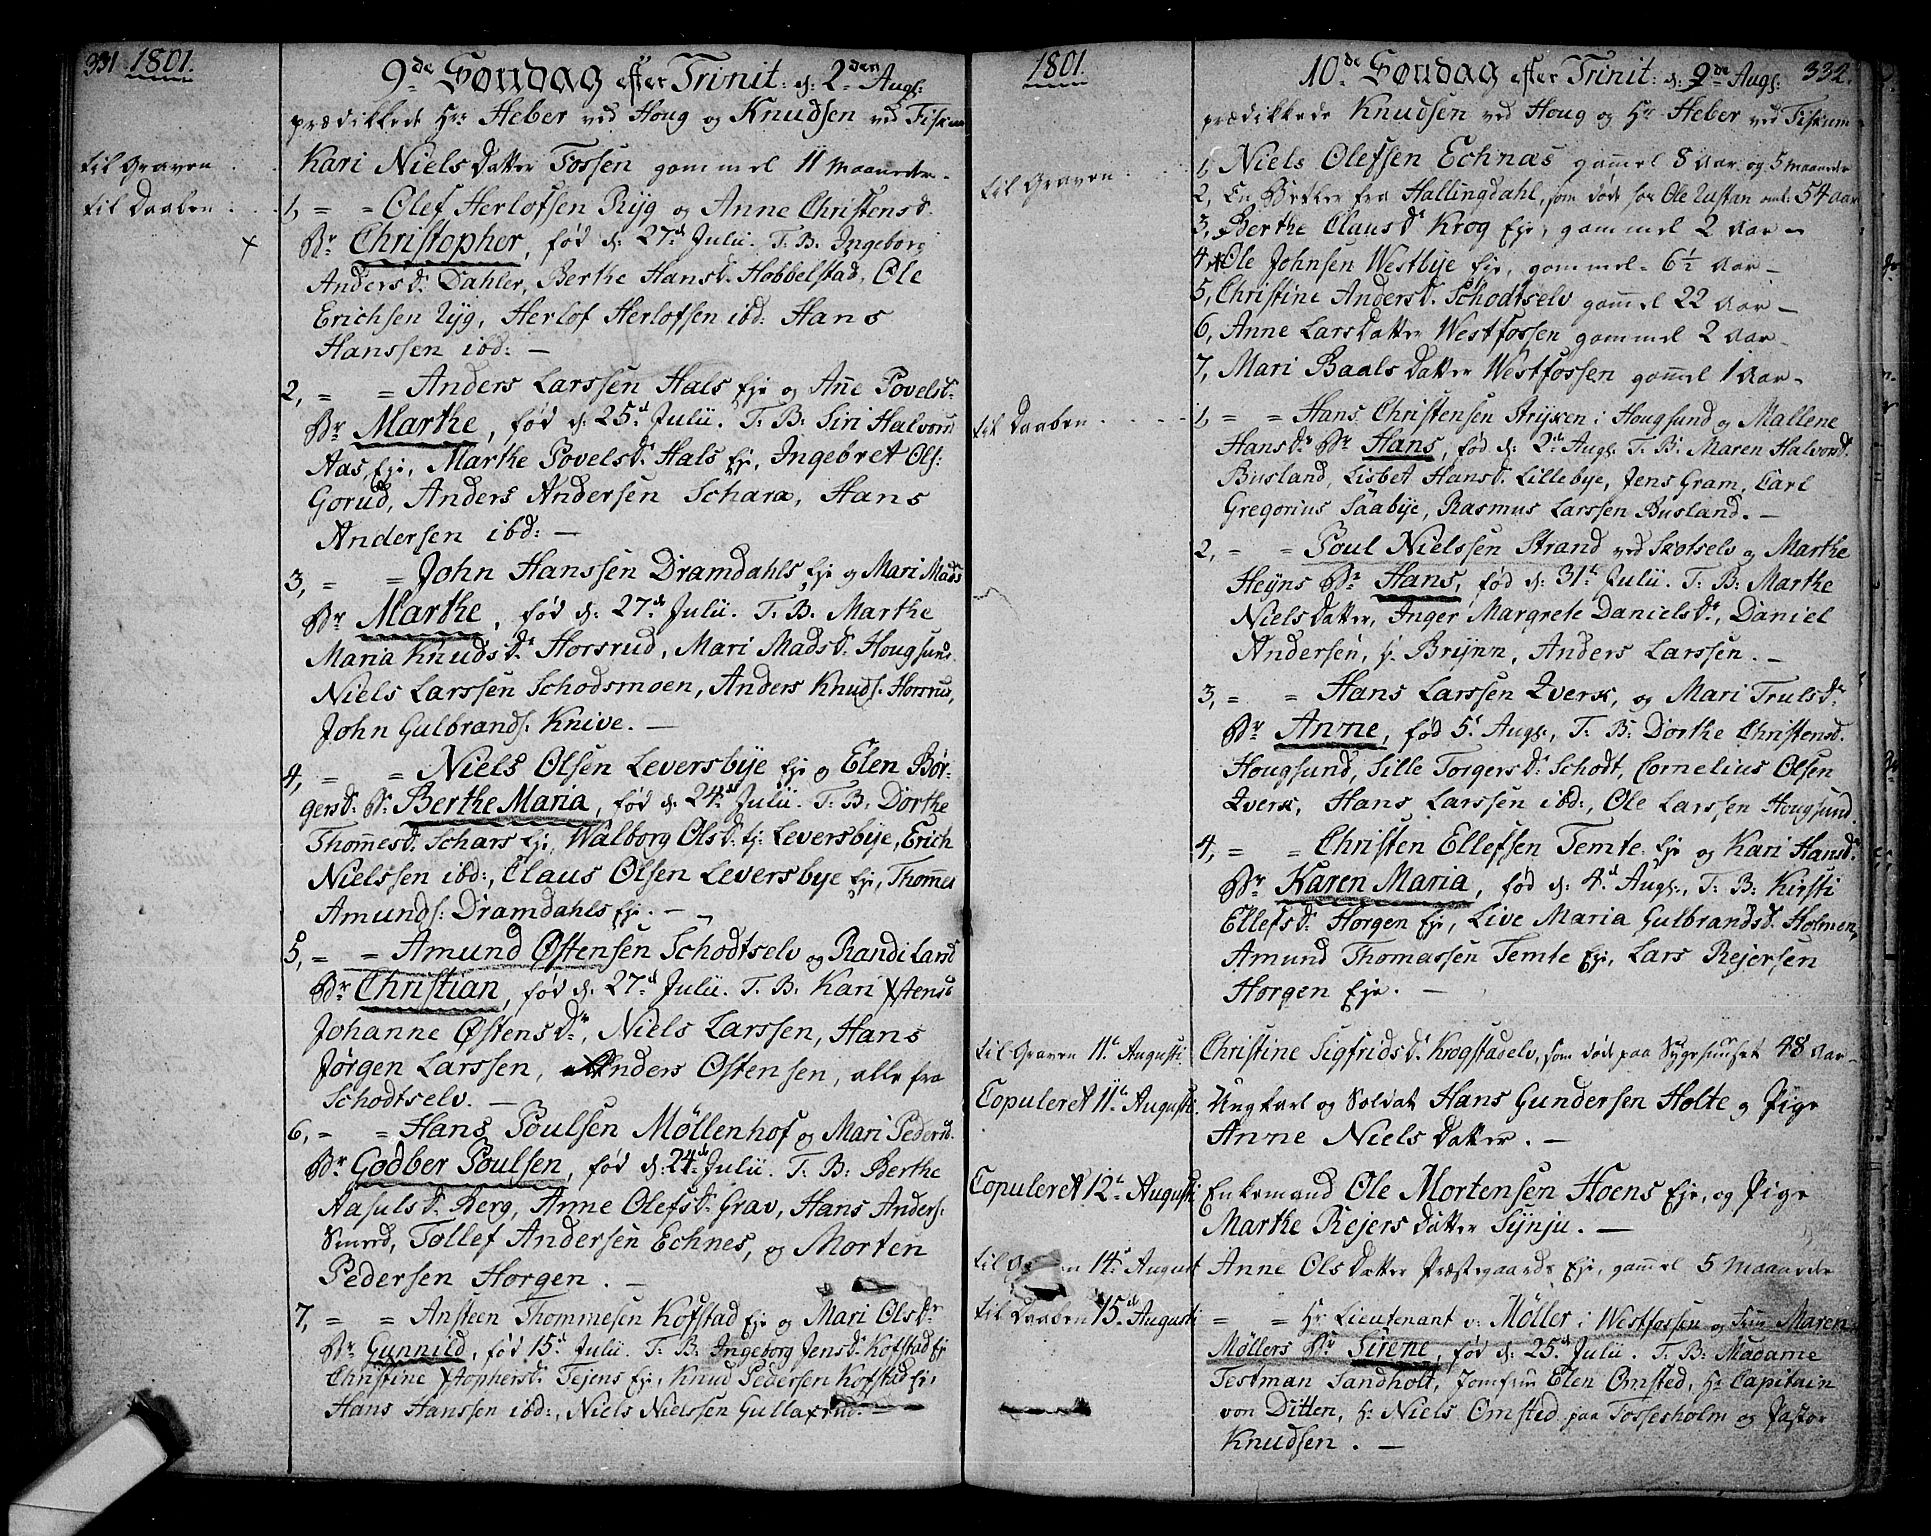 331 1801.
9de Søndag efter Trinit: d: 2den Augs:
prædikkede Hr: Heber ved Houg og Knudsen ved Fiskum
til Graven . Kari Niels Datter Fossen gammel 11 Maaneder.
til Daaben . 1, = = Olef Herlofsen Ryg og Anne Christensd.
Br Christopher, fød d: 27d Julii. T. B: Ingeborg
Andersd. Dahler, Berthe Hansd. Hobbelstad, Ole
Erichsen Ryg, Herlof Herlofsen ibd: Hans
Hanssen ibd: —
2, = = Anders Larssen Hals Eje og Anne Povelsd.
Br Marthe, fød d: 25d Julii. T. B: Siri Halvorsd
Aas Eje, Marthe Povelsd. Hals Eje, Ingebret Ols:
Gorud, Anders Andersen Schara, Hans
Andersen ibd: —
3, = = John Hanssen Dramdahls Eje og Mari Mads
Br Marthe, fød d: 27d Julii. T. B: Marthe
Maria Knudsdr Horsrud, Mari Madsd. Hougsund.
Niels Larssen Schodsmoen, Anders Knuds: Horsrud,
John Gulbrands: Knive. —
4, = = Niels Olsen Leversbye Eje og Elen Bør-
gersd. Br Berthe Maria, fød d: 24d Julii. T. B: Dorthe
Thommesd. Schars Eje, Walborg Olsd. Leversbye, Erich
Nielssen ibd:, Claus Olsen Leversbye Eje, Thommes
Amunds: Dramdahls Eje. —
5, = = Amund Østensen Schodtselv og Randi Lars
Br Christian, fød d: 27d Julii. T. B: Kari Xstens
Johanne Østensdr, Niels Larssen, Hans
Jørgen Larssen, Anders Østensen, alle fra
Schodtselv. —
6, = = Hans Poulsen Møllenhof og Mari Pedersd.
Br Godber Poulsen, fød d: 24d Julii. T. B: Berthe
Aasulsd. Berg, Anne Olefsd. Grav, Hans Anders:
Smed, Tollef Andersen Echnes, og Morten
Pedersen Horgen. —
7, = = Ansteen Thommesen Kofstad Eje og Mari Olsdr
Br Gunnild, fød 15d Julii. T. B: Ingeborg Jensd. Kofstad Eje
Christine Xstophersd. Tejens Eje, Knud Pedersen Kofstad Eje,
Hans Hanssen ibd:, Niels Nielssen Gullaxrud. —
1801.
10de Søndag efter Trinit: d: 9de Augs: 332.
prædikkede Knudsen ved Houg og Hr Heber ved Fiskum
til Graven . 1, Niels Olefsen Echnæs gammel 8 Aar og 5 maaneder
2, En Betler fra Hallingdahl, som døde hos Ole Rustan 54 Aar
3, Berthe Clausdr Krog Eje, gammel 2 Aar —
4, Ole Johnsen Westbye Eje, gammel 6½ Aar —
5, Christine Andersd. Schodtselv gammel 22 Aar —
6, Anne Lars Datter Westfossen gammel 2 Aar.
7, Mari Baals Datter Westfossen gammel 1 Aar.
til Daaben . 1, = = Hans Christensen Stryken i Hougsund og Mallene
Hansdr Br Hans, fød d: 2d Augs. T. B: Maren Halvorsd.
Busland, Lisbet Hansd. Lillebye, Jens Gram, Carl
Gregorius Saabye, Rasmus Larssen Busland. —
2, = = Poul Nielssen Strand ved Skotselv og Marthe
Heyns Br Hans, fød d: 31d Julii. T. B: Marthe
Niels Datter, Inger Margrete Danielsdr, Daniel
Andersen, Hr Brynn, Anders Larssen. —
3, = = Hans Larssen Zverk, og Mari Trulsdr
Br Anne, fød 5d Augs:, T. B: Dorthe Christensd.
Hougsund, Sille Torgersd. Schodt, Cornelius Olsen
Zverk, Hans Larssen ibd:, Ole Larssen Hougsund.
4, = = Christen Ellefsen Temte Eje og Kari Hansd.
Br Karen Maria, fød d: 4d Augs:, T. B: Kirsti
Ellefsd. Horgen Eje, Live Maria Gulbrandsd. Holmen,
Amund Thomassen Temte Eje, Lars Rejersen
Horgen Eje. —
til Graven 11d Augusti Christine Sigfridsd. Krogstadelv, som døde paa Sygehuuset 48 Aar —
Copuleret 11d Augusti. Ungkarl og Soldat Hans Gundersen Holte og Pige
Anne Niels Datter. —
Copuleret 12d Augusti Enkemand Ole Mortensen Hoens Eje, og Pige
Marthe Rejers Datter Synju. —
til Graven 14d August Anne Ols Datter Præstegaards Eje, gammel 5 Maaneder
til Daaben 15d Augusti = = Hr Lieutenant v: Møller i Westfossen og Frue Maren
Møllers Br Sirene, fød d: 25d Julii. T. B: Madame
Testman Sandholt, Jomfrue Elen Omsted, Hr Capitain
von Ditten, Hr Niels Omsted paa Fossesholm og Pastor
Knudsen. —